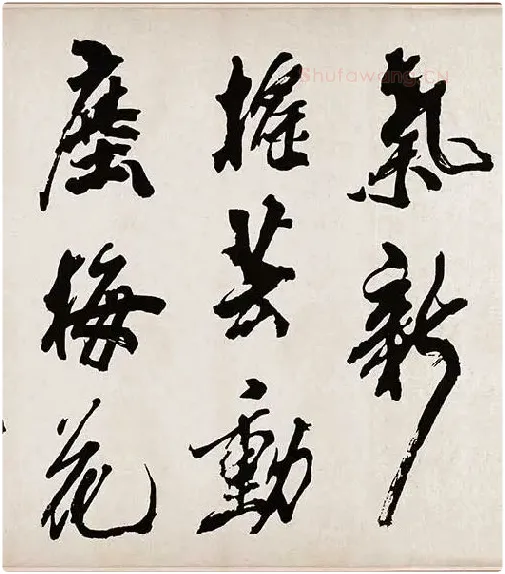 氣新
芸動
梅花
Shufawang.CN